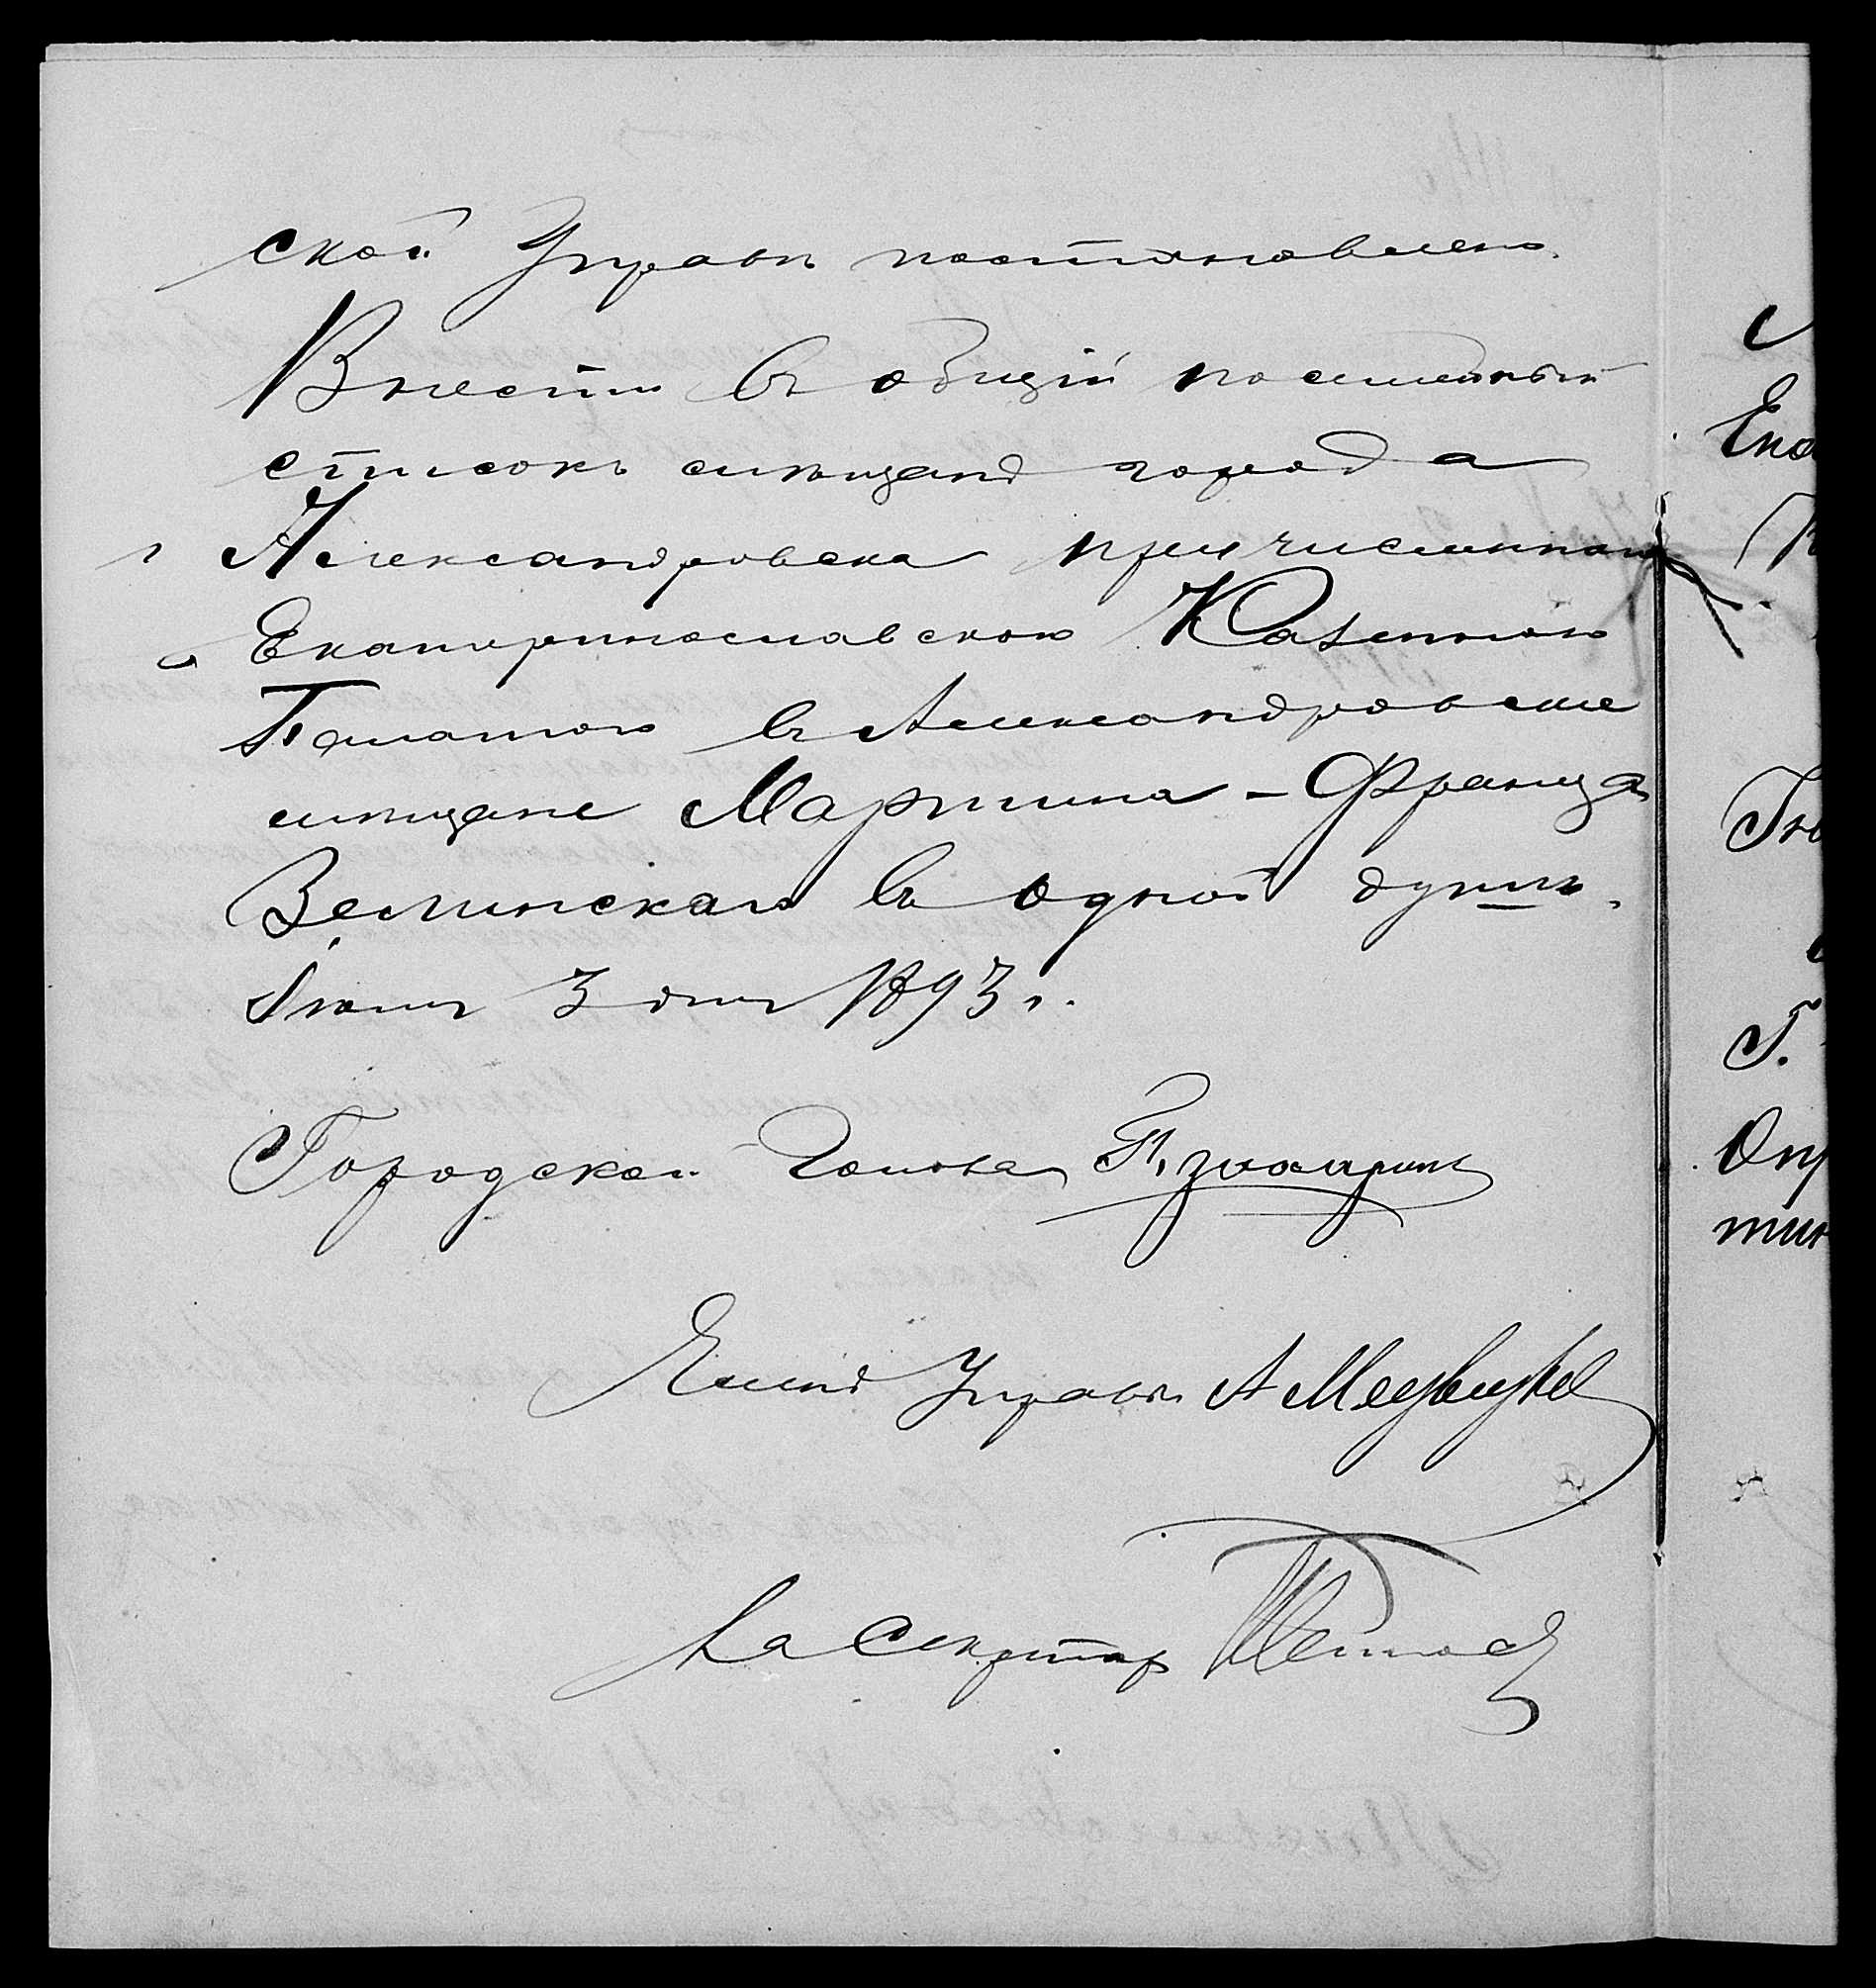 ской Управѣ постановлено.
Внести въ общій посемейный
списокъ мѣщанъ города
Александровска причисленнаго
Екатеринославскою Казенною
Палатою въ Александровские
мѣщане Мартина-Франца
Велинскаго въ одной душѣ.
Іюня 3 дня 1893 г.
Городской Голова
Членъ Управы А Медведев
За Секретар
Ека
Г.
Опр
тин